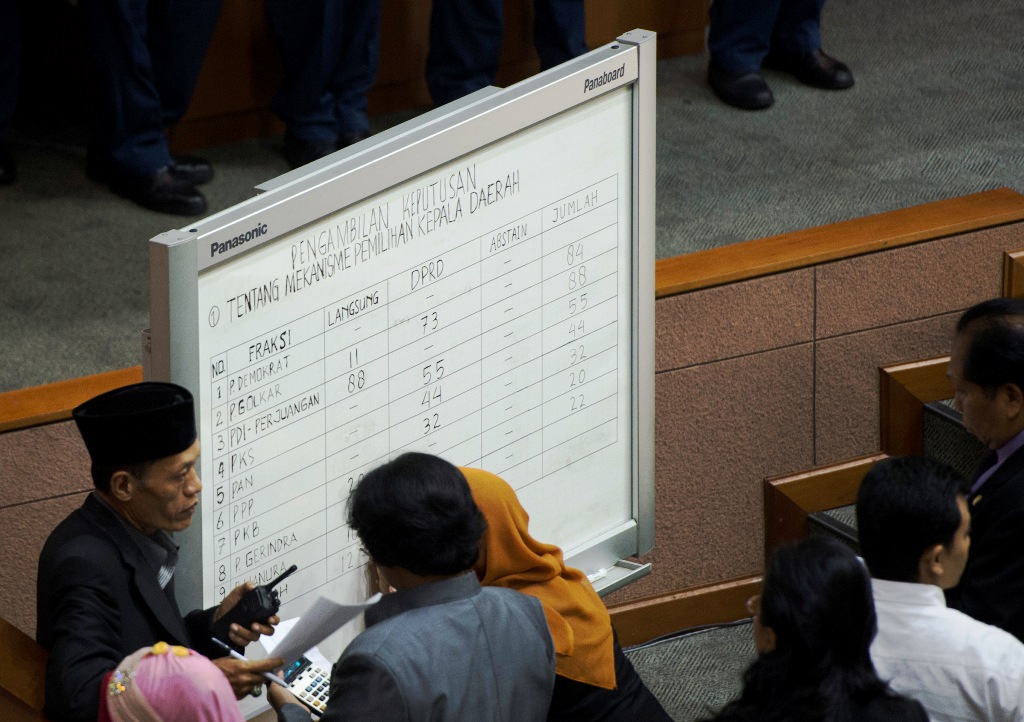 Panasonic
Panaboard
PENGAMBILAN KEPUTUSAN
① TENTANG MEKANISME PEMILIHAN KEPALA DAERAH
NO. FRAKSI LANGSUNG DPRD ABSTAIN JUMLAH
1 P. DEMOKRAT - - -
2 P. GOLKAR 11 73 - 84
3 PDI-PERJUANGAN 88 - - 88
4 PKS - 55 - 55
5 PAN - 44 - 44
6 PPP - 32 - 32
7 PKB 20
8 P. GERINDRA 22
9